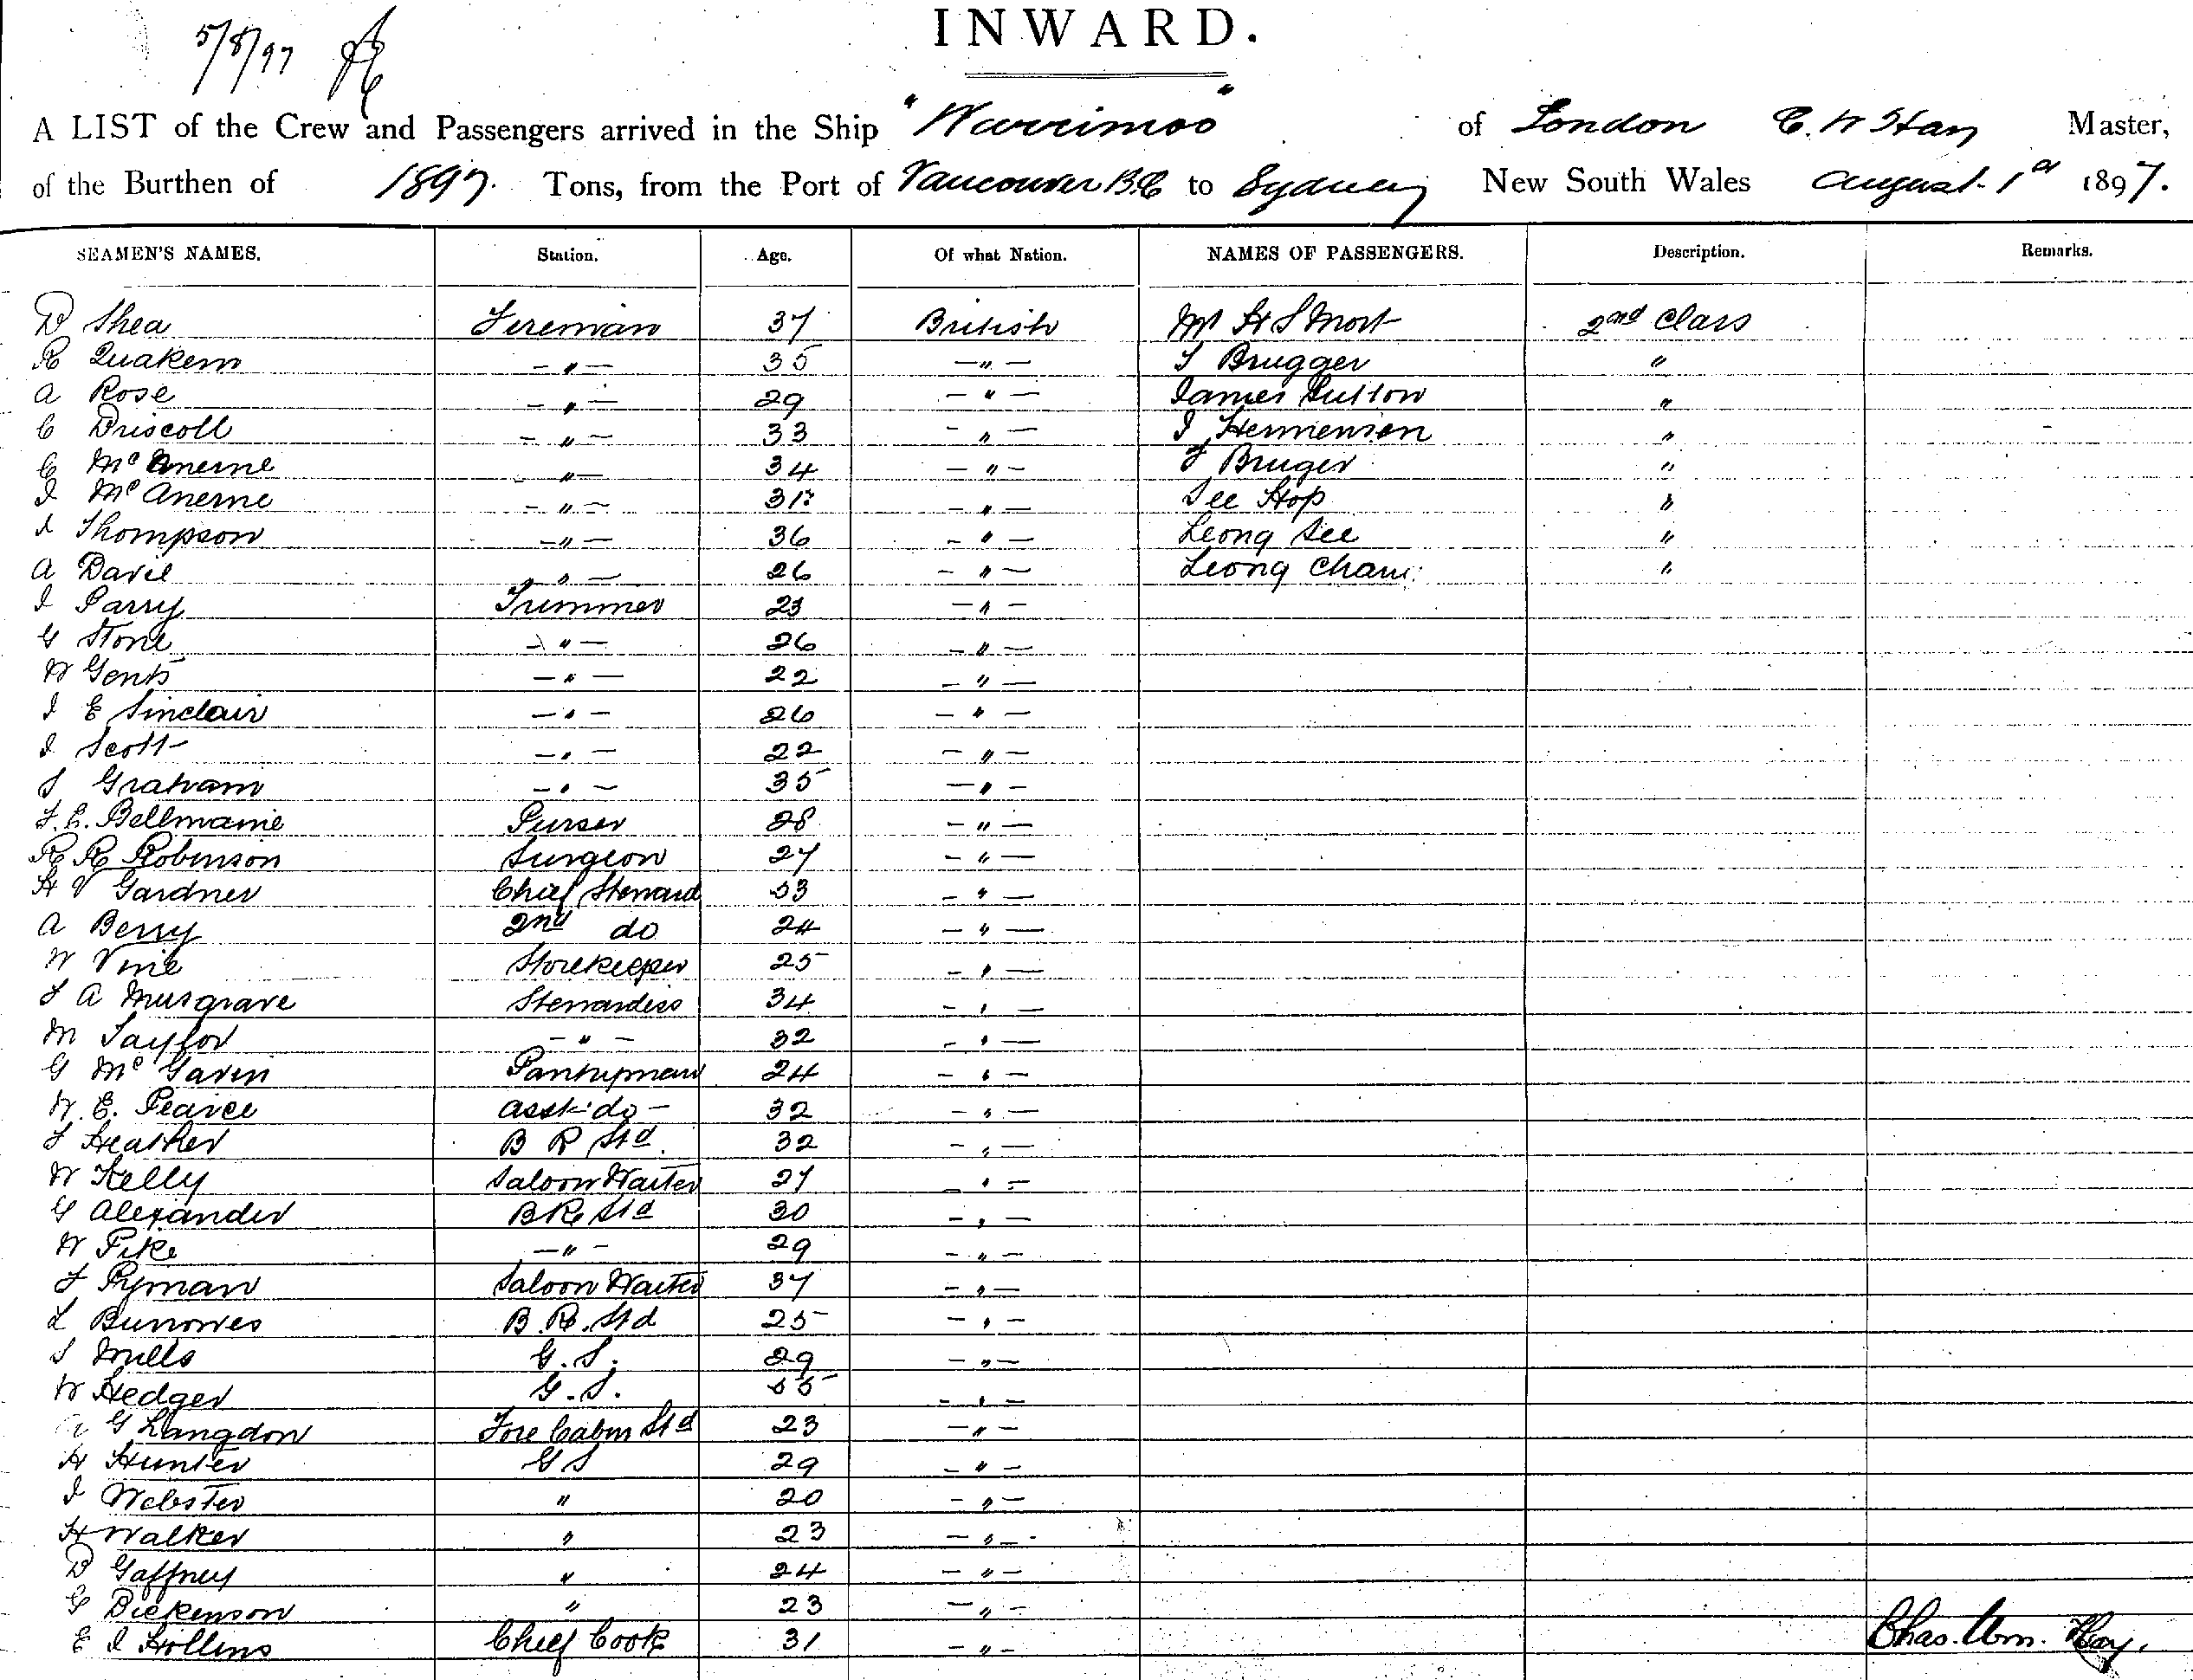 INWARD.
5/8/97
A LIST of the Crew and Passengers arrived in the Ship "Warrimoo" of London C. W Hay Master,
of the Burthen of 1897. Tons, from the Port of Vancouver B.C to Sydney New South Wales August 1st 1897.
SEAMEN'S NAMES. Station. Age. Of what Nation. NAMES OF PASSENGERS. Description. Remarks.
D Shea Fireman 37 British Mr H S Mort 2nd Class
R Quakem -"- 35 -"- Brugger "
A Rose -"- 29 -"- James Sutton "
C Driscoll -"- 33 -"- J Hermensen "
C McAnerne -"- 34 -"- Bruger "
J McAnerne -"- 31 -"- See Hop "
J Thompson -"- 36 -"- Leong See "
A Davie "- 26 -"- Leong Cham "
J Parry Trimmer 23 -"-
G Stone -"- 26 -"-
W Gents -"- 22 -"-
J E Sinclair -"- 26 -"-
J Scott -"- 22 -"-
S Graham -"- 35 -"-
F. E. Bellmaine Purser 28 -"-
R R Robinson Surgeon 27 -"-
H V Gardner Chief Steward 33 -"-
A Berry 2nd do 24 -"-
W Vine Storekeeper 25 -"-
A Musgrave Stewardess 34 -"-
M Taylor -"- 32 -"-
G McGavin Pantryman 24 -"-
W. E. Pearce Asst do - 32 -"-
F Heather B R Std. 32 -"-
W Kelly Saloon Waiter 27 -"-
G Alexander B R Std 30 -"-
W Pike -"- 29 -"-
F Pyman Saloon Waiter 37 -"-
L Burrowes B. R. Std 25 -"-
S Mills G. S. 29 -"-
W Hedger G. S. 35 -"-
A G Langdon Fore Cabin Std 23 -"-
H Hunter G S 29 -"-
J Webster " 20 -"-
H Walker " 23 -"-
D Gaffney " 24 -"-
G Dickenson " 23 -"-
E J Hollins Chief Cook 31 -"- Chas. Wm. Hay.